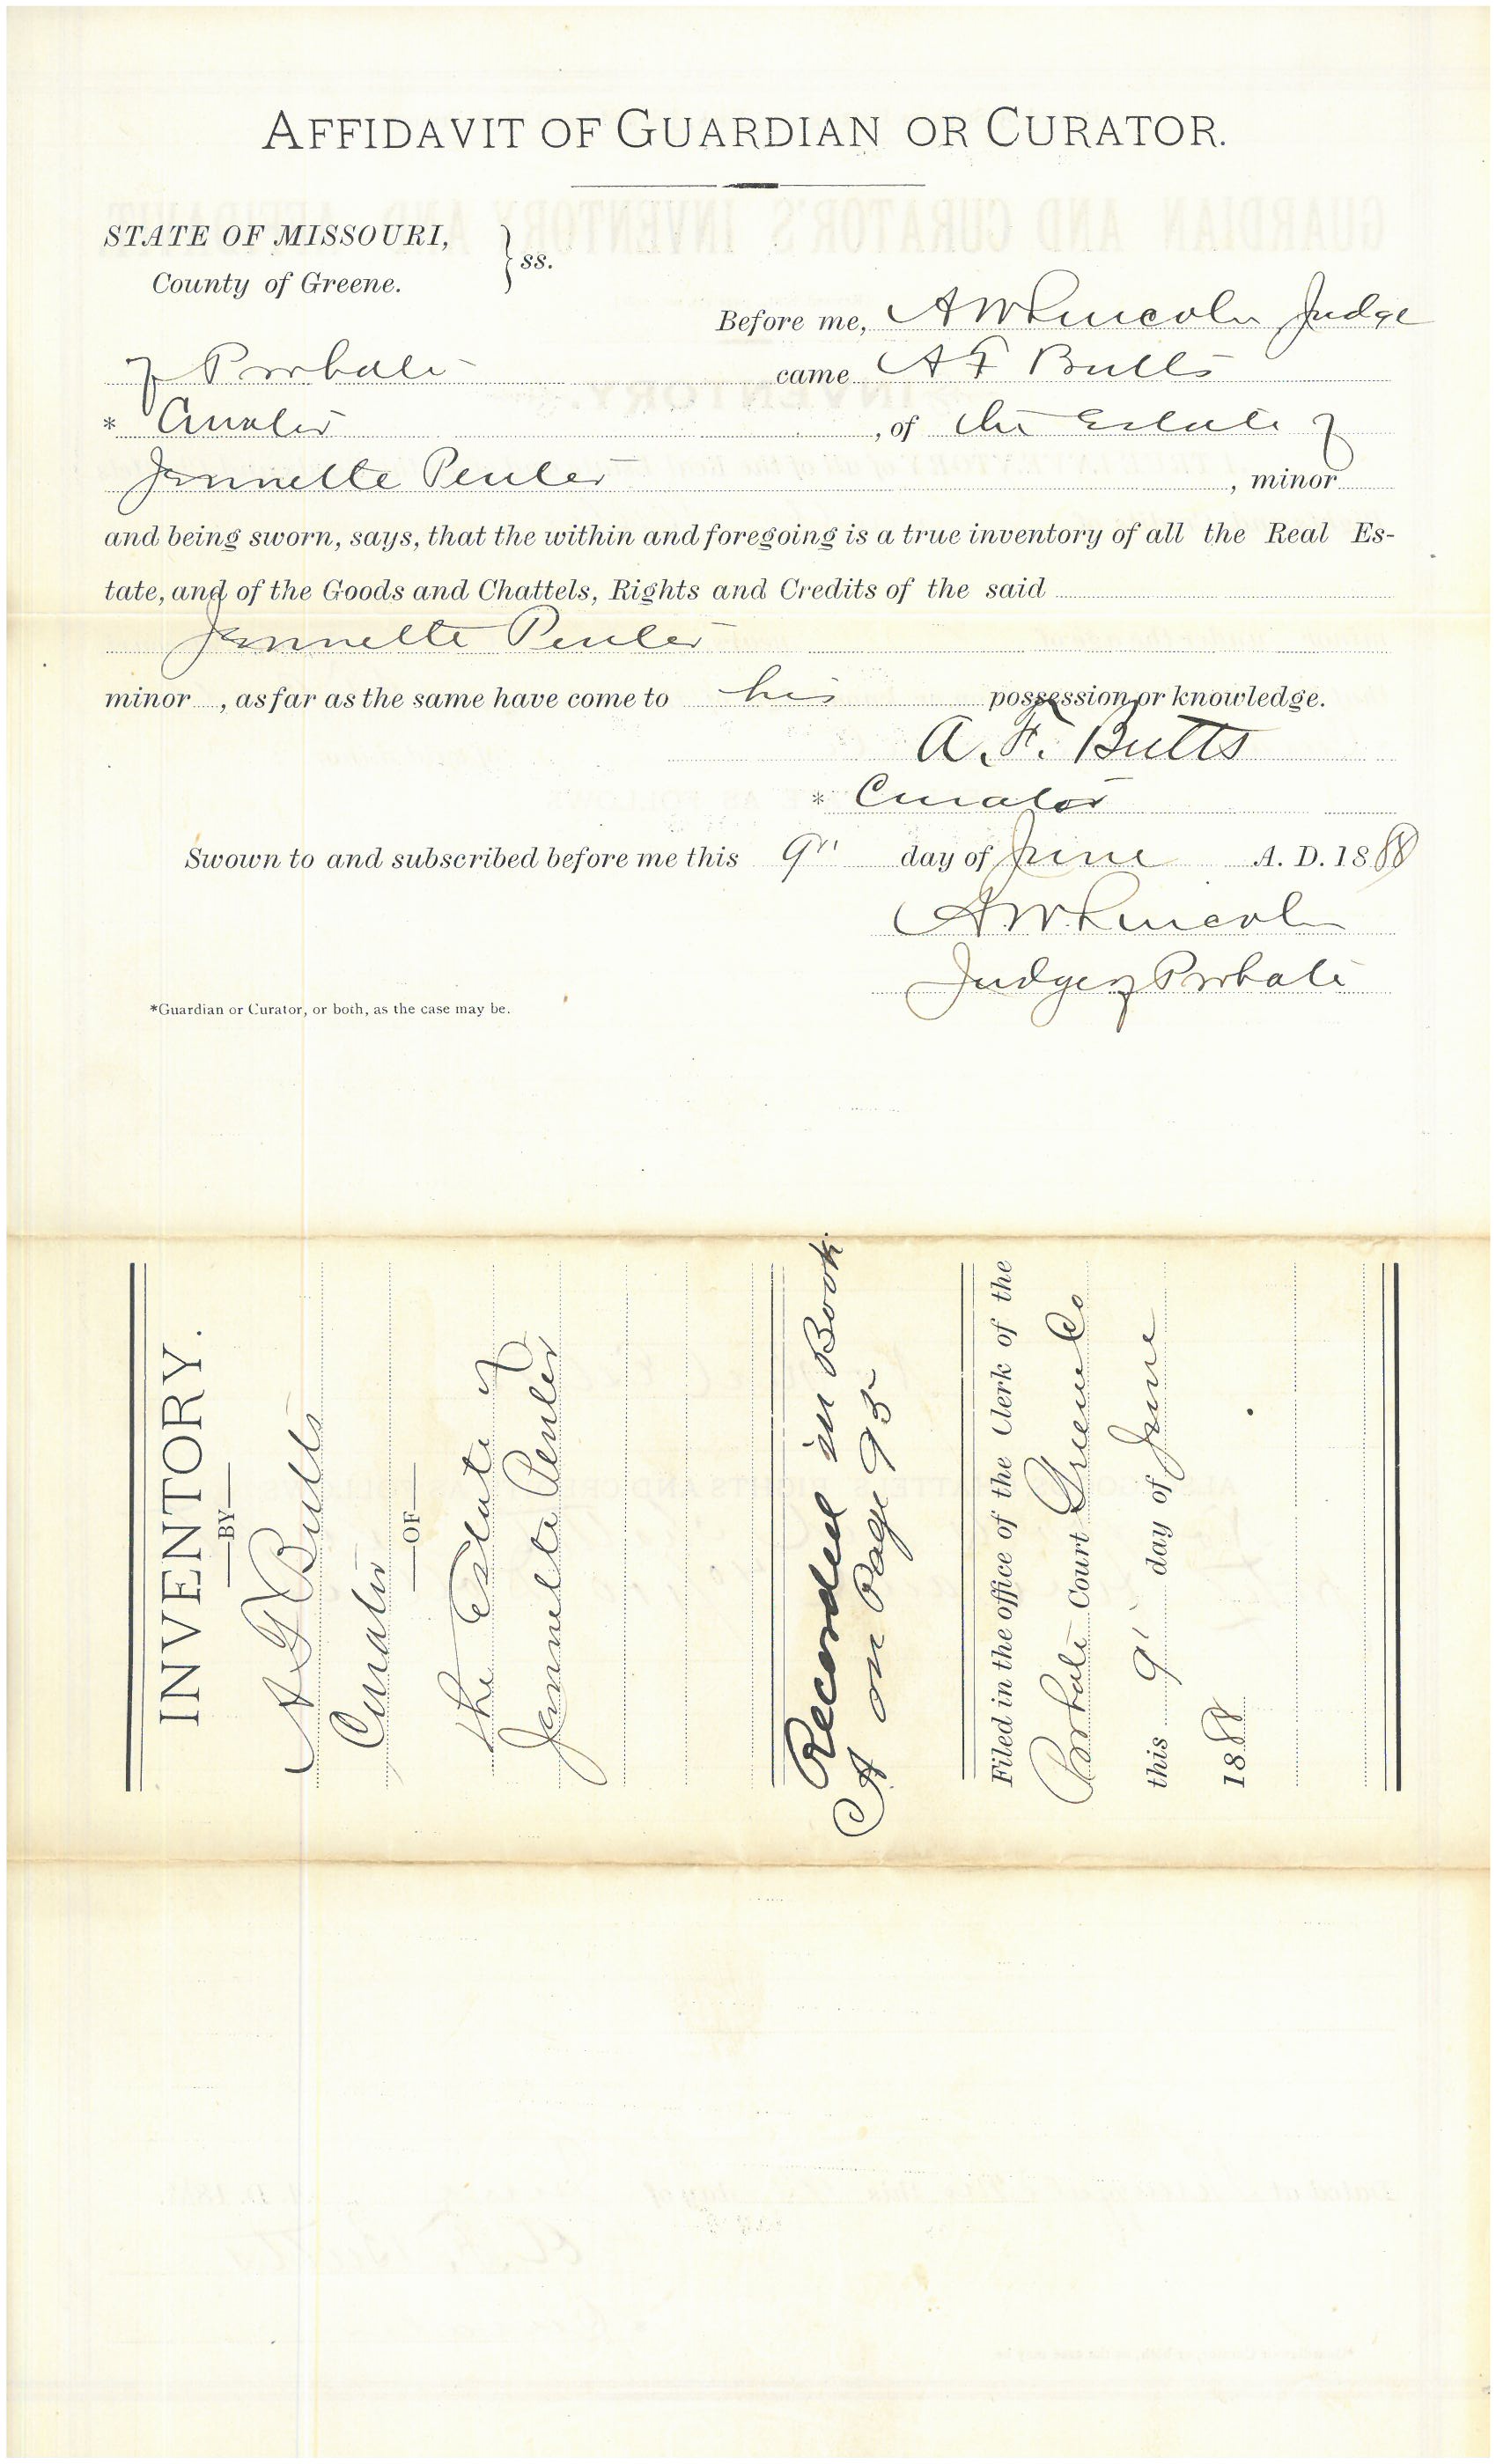 AFFIDAVIT OF GUARDIAN OR CURATOR.
STATE OF MISSOURI,
County of Greene. } ss.
Before me, A W Lincoln Judge
of Probate came A F Butts
* Curator , of the Estate of
Jennette Penter , minor
and being sworn, says, that the within and foregoing is a true inventory of all the Real Es-
tate, and of the Goods and Chattels, Rights and Credits of the said
Jennette Penter
minor , as far as the same have come to his possession or knowledge.
A. F. Butts
* Curator
Swown to and subscribed before me this 9" day of June A. D. 1888
A. W. Lincoln
Judge of Probate
*Guardian or Curator, or both, as the case may be.
INVENTORY.
—BY—
A F Butts
Curator
—OF—
the Estate of
Jennette Penter
Recorded in Book
A on Page 95
Filed in the office of the Clerk of the
Probate Court Greene Co
this 9" day of June
1888